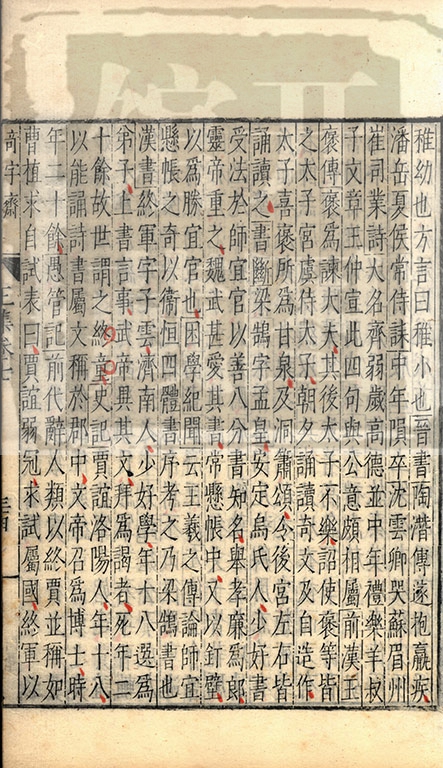 稚幼也方言曰稚小也晉書陶潛傳遂抱羸疾
潘岳夏侯常侍誄中年隕卒沈雲卿哭蘇眉州
崔司業詩大名齊弱歲高德並中年禮樂羊叔
子文章王仲宣此四句與公意頗相屬前漢王
褒傳褒爲諫大夫其後太子不樂詔使褒等皆
之太子宮虞侍太子朝夕誦讀奇文及自造作
太子喜褒所爲甘泉及洞簫頌令後宮左右皆
誦讀之書斷梁鵠字孟皇安定烏氏人少好書
受法於師宜官以善八分書知名舉孝廉爲郎
靈帝重之魏武甚愛其書常懸帳中又以釘壁
以爲勝宜官也困學紀聞云王羲之傳論師宜
懸帳之奇以衛恒四體書序考之乃梁鵠書也
漢書終軍字子雲濟南人少好學年十八選爲
弟子上書言事武帝異其文拜爲謁者死年二
十餘故世謂之終童史記賈誼洛陽人年十八
以能誦詩書屬文稱於郡中文帝召爲博士時
年二十餘愚管記前代辭人類以終賈並稱如
曹植求自試表曰賈誼弱冠求試屬國終軍以